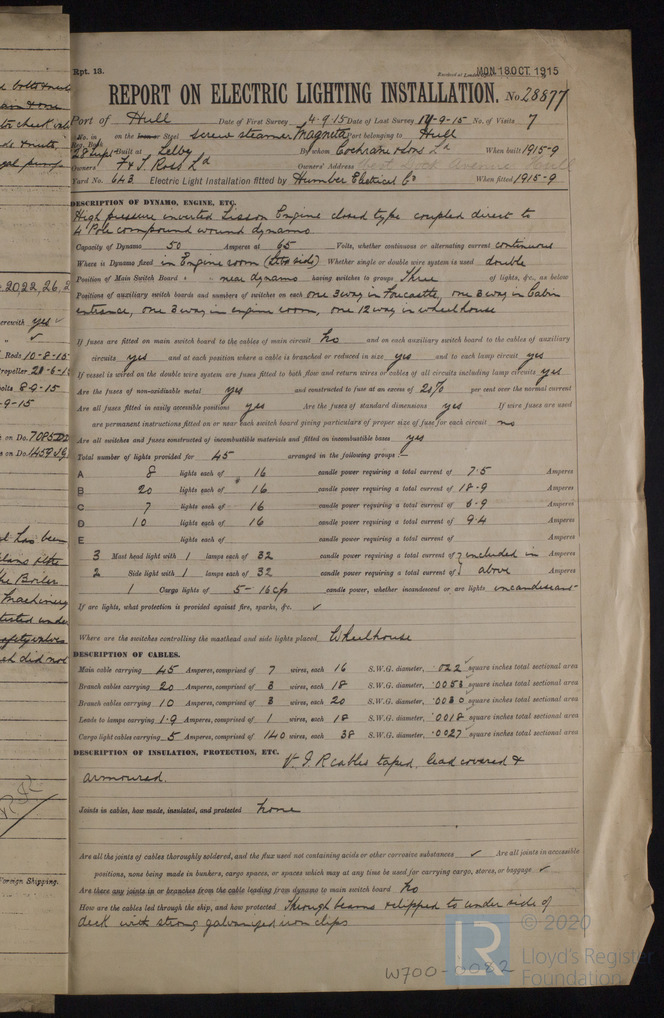 Rpt. 13.
MON 18 OCT. 1915
REPORT ON ELECTRIC LIGHTING INSTALLATION. No. 28877
Port of Hull Date of First Survey 4-9-15 Date of Last Survey -9-15 No. of Visits 7
No. in on the Iron or Steel screw steamer Magneta Port belonging to Hull
Reg. Book
28 Supt Built at Selby By whom Cochrane & Sons Ld When built 1915-9
Owners F & T Ross Ld Owners' Address
Yard No. 643 Electric Light Installation fitted by Humber Electrical Co When fitted 1915-9
DESCRIPTION OF DYNAMO, ENGINE, ETC.
High pressure inverted Sisson Engine closed type coupled direct to
4 Pole compound wound dynamo
Capacity of Dynamo 50 Amperes at 65 Volts, whether continuous or alternating current continuous
Where is Dynamo fixed in Engine room Whether single or double wire system is used double
Position of Main Switch Board " " near dynamo having switches to groups Three of lights, &c., as below
Positions of auxiliary switch boards and numbers of switches on each one 3 way in Forecastle, one 3 way in Cabin
entrance, one 3 way in engine room, one 12 way in wheelhouse
If fuses are fitted on main switch board to the cables of main circuit no and on each auxiliary switch board to the cables of auxiliary
circuits yes and at each position where a cable is branched or reduced in size yes and to each lamp circuit yes
If vessel is wired on the double wire system are fuses fitted to both flow and return wires or cables of all circuits including lamp circuits yes
Are the fuses of non-oxidizable metal yes and constructed to fuse at an excess of 20% per cent over the normal current
Are all fuses fitted in easily accessible positions yes Are the fuses of standard dimensions yes If wire fuses are used
are permanent instructions fitted on or near each switch board giving particulars of proper size of fuse for each circuit no
Are all switches and fuses constructed of incombustible materials and fitted on incombustible bases yes
Total number of lights provided for 45 arranged in the following groups :—
A 8 lights each of 16 candle power requiring a total current of 7.5 Amperes
B 20 lights each of 16 candle power requiring a total current of 18.9 Amperes
C 7 lights each of 16 candle power requiring a total current of 6.9 Amperes
D 10 lights each of 16 candle power requiring a total current of 9.4 Amperes
E lights each of candle power requiring a total current of Amperes
3 Mast head light with 1 lamps each of 32 candle power requiring a total current of included in Amperes
2 Side light with 1 lamps each of 32 candle power requiring a total current of above Amperes
1 Cargo lights of 5-16 cp candle power, whether incandescent or arc lights incandescent
If arc lights, what protection is provided against fire, sparks, &c. ✓
Where are the switches controlling the masthead and side lights placed Wheelhouse
DESCRIPTION OF CABLES.
Main cable carrying 45 Amperes, comprised of 7 wires, each 16 S.W.G. diameter, .022 square inches total sectional area
Branch cables carrying 20 Amperes, comprised of 3 wires, each 18 S.W.G. diameter, .0053 square inches total sectional area
Branch cables carrying 10 Amperes, comprised of 3 wires, each 20 S.W.G. diameter, .0030 square inches total sectional area
Leads to lamps carrying 1.9 Amperes, comprised of 1 wires, each 18 S.W.G. diameter, .0018 square inches total sectional area
Cargo light cables carrying 5 Amperes, comprised of 140 wires, each 38 S.W.G. diameter, .0027 square inches total sectional area
DESCRIPTION OF INSULATION, PROTECTION, ETC.
V.I.R cables taped, lead covered &
armoured.
Joints in cables, how made, insulated, and protected none
Are all the joints of cables thoroughly soldered, and the flux used not containing acids or other corrosive substances ✓ Are all joints in accessible
positions, none being made in bunkers, cargo spaces, or spaces which may at any time be used for carrying cargo, stores, or baggage ✓
Are there any joints in or branches from the cable leading from dynamo to main switch board no
How are the cables led through the ship, and how protected Through beams & clipped to under side of
deck with strong galvanized iron clips
W700-0082
© 2020
Lloyd's Register
Foundation
LR